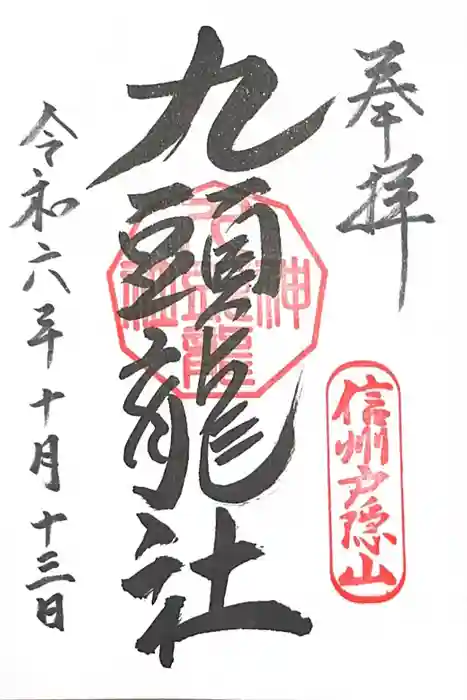 奉拝
信州戸隠山
九頭龍社
令和六年十月十三日